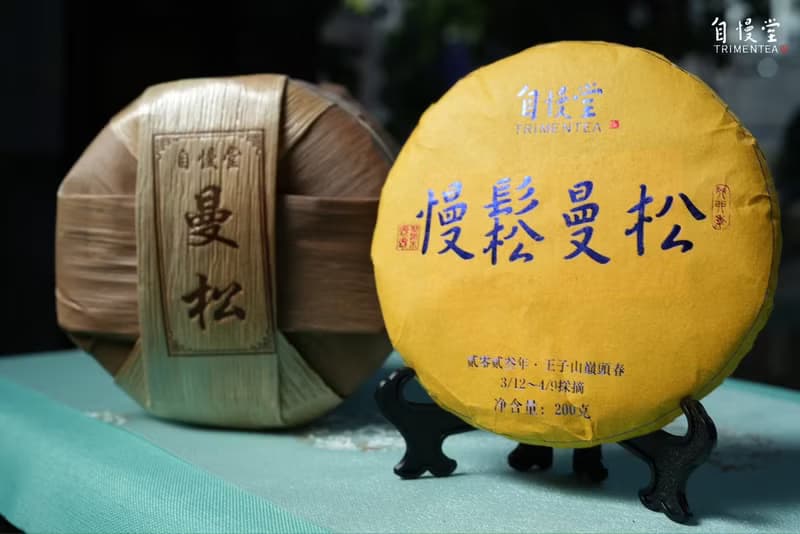 自慢堂
TRIMENTEA
自慢堂
曼
松
自慢堂
TRIMENTEA
慢鬆曼松
贰零贰叁年·王子山巔頭春
3/12～4/9採摘
净含量：200克